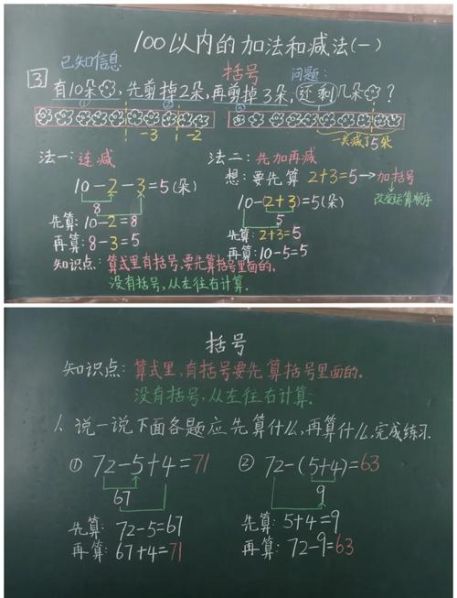 100以内的加法和减法(一)
已知信息 括号 问题:
3 有10朵,先剪掉2朵,再剪掉3朵,还剩几朵?
-3 -2 一共减了5朵
法一:连减 法二:先加再减
想:要先算 2+3=5→加括号
改变运算顺序
10-2-3=5(朵) 10-(2+3)=5(朵)
8 5
先算:10-2=8 先算:2+3=5
再算:8-3=5 再算:10-5=5
知识点:算式里有括号,要先算括号里面的。
没有括号,从左往右计算。
括号
知识点:算式里,有括号要先算括号里面的。
没有括号,从左往右计算。
1、说一说下面各题应先算什么,再算什么,完成练习.
① 72-5+4=71 ② 72-(5+4)=63
67 9
先算:72-5=67 先算:5+4=9
再算:67+4=71 再算:72-9=63